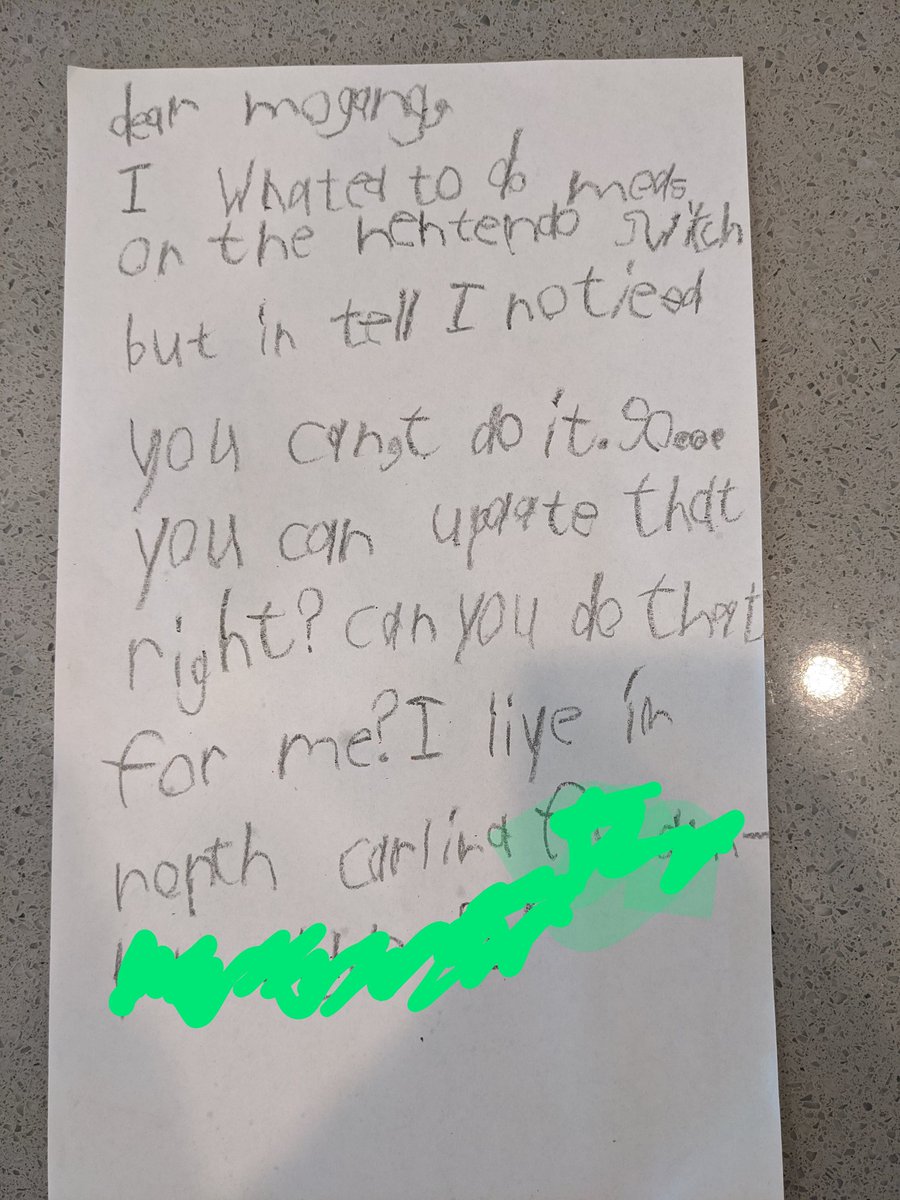 dear mogang,
I Whated to do meds
on the nentendo switch
but in tell I notieed
you can,t do it. So...
you can update that
right? can you do that
for me? I live in
nopth carlina